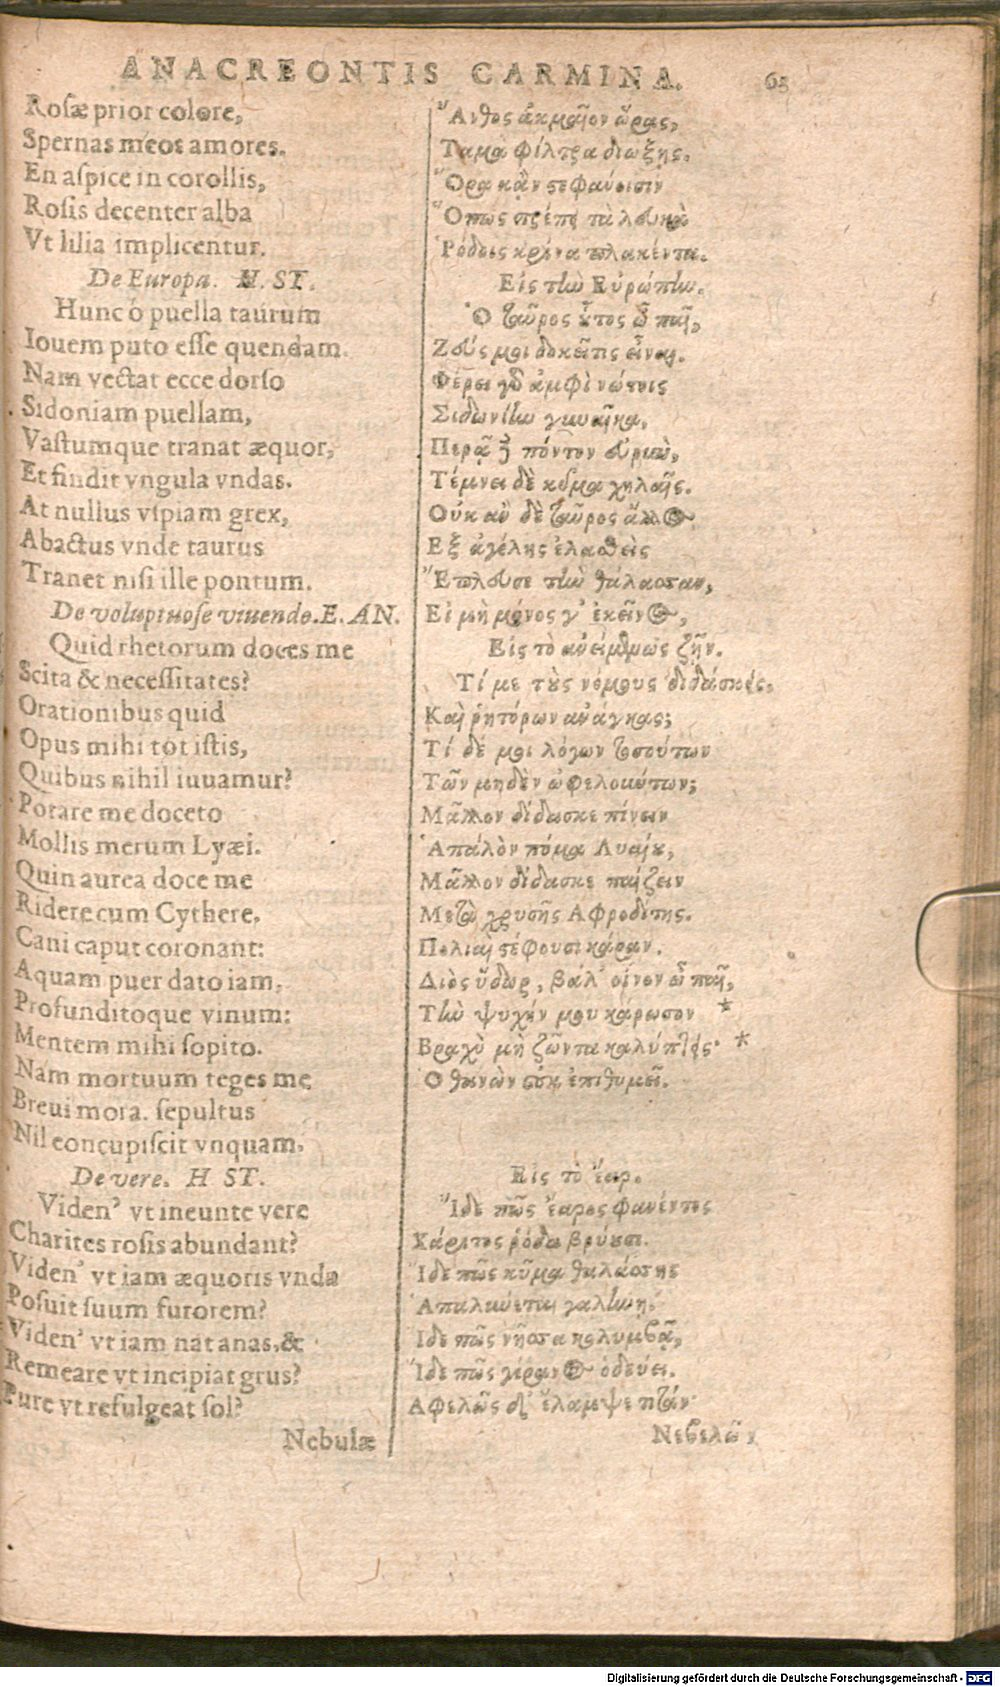 ANACREONTIS CARMINA. 63
Rosæ prior colore,
Spernas meos amores.
En aſpice in corollis,
Roſis decenter alba
Vt lilia implicentur.
De Europa. H. ST.
Hunc ô puella taurum
Iouem puto eſſe quendam.
Nam vectat ecce dorſo
Sidoniam puellam,
Vaſtumque tranat æquor,
Et findit vngula vndas.
At nullus vſpiam grex,
Abactus vnde taurus
Tranet niſi ille pontum.
De voluptuoſe viuendo. E. AN.
Quid rhetorum doces me
Scita & neceſſitates?
Orationibus quid
Opus mihi tot iſtis,
Quibus nihil iuuamur?
Potare me doceto
Mollis merum Lyæi.
Quin aurea doce me
Ridere cum Cythere,
Cani caput coronant:
Aquam puer dato iam,
Profunditoque vinum:
Mentem mihi ſopito.
Nam mortuum teges me
Breui mora. ſepultus
Nil concupiſcit vnquam.
De vere. H ST.
Viden' vt ineunte vere
Charites roſis abundant?
Viden' vt iam æquoris vnda
Poſuit ſuum furorem?
Viden' vt iam nat anas, &
Remeare vt incipiat grus?
Pure vt refulgeat ſol?
Nebulæ
Ἄνθος ἀκμαῖον ὥρας,
Τἀμὰ φίλτρα διώξῃς.
Ὅρα κἀν στεφάνοισιν
Ὅπως πρέπει τὰ λευκὰ
Ῥόδοις κρίνα πλακέντα.
Εἰς τὴν Εὐρώπην.
Ὁ ταῦρος οὗτος ὦ παῖ,
Ζεύς μοι δοκεῖ τις εἶναι.
Φέρει γὰρ ἀμφὶ νώτοις
Σιδωνίην γυναῖκα,
Περᾷ δὲ πόντον εὐρὺν,
Τέμνει δὲ κῦμα χηλαῖς.
Οὐκ ἂν δὲ ταῦρος ἄλλος
Ἐξ ἀγέλης ἐλαθεὶς
Ἔπλευσε τὴν θάλασσαν,
Εἰ μὴ μόνος γ' ἐκεῖνος,
Εἰς τὸ ἀνειμένως ζῆν.
Τί με τοὺς νόμους διδάσκεις,
Καὶ ῥητόρων ἀνάγκας;
Τί δέ μοι λόγων τοσούτων
Τῶν μηδὲν ὠφελούντων;
Μᾶλλον δίδασκε πίνειν
Ἁπαλὸν πόμα Λυαίου,
Μᾶλλον δίδασκε παίζειν
Μετὰ χρυσῆς Ἀφροδίτης.
Πολιαὶ στέφουσι κάραν.
Διὸς ὕδωρ, βάλ' οἶνον ὦ παῖ,
Τὴν ψυχήν μου κάρωσον *
Βραχὺ μὴ ζῶντα καλύπτεις· *
Ὁ θανὼν οὐκ ἐπιθυμεῖ.
Εἰς τὸ ἔαρ.
Ἴδε πῶς ἔαρος φανέντος
Χάριτες ῥόδα βρύουσι.
Ἴδε πῶς κῦμα θαλάσσης
Ἁπαλύνεται γαλήνῃ.
Ἴδε πῶς νῆσσα κολυμβᾷ,
Ἴδε πῶς γέρανος ὁδεύει.
Ἀφελῶς δ' ἔλαμψε τιτάν·
Νεφελῶν